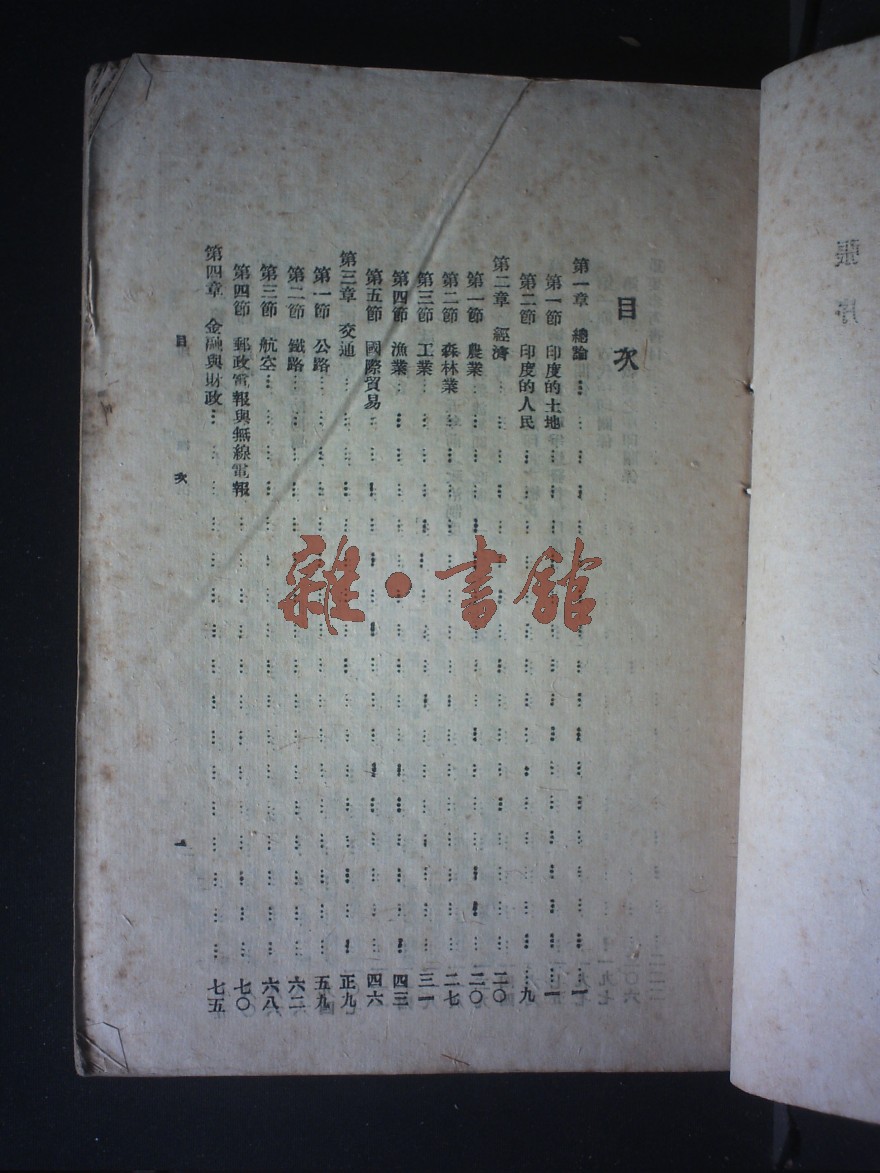 目次
第一章 總論……一
第一節 印度的土地……一
第二節 印度的人民……九
第二章 經濟……二〇
第一節 農業……二〇
第二節 森林業……二七
第三節 工業……三一
第四節 漁業……四三
第五節 國際貿易……四六
第三章 交通……正九
第一節 公路……五九
第二節 鐵路……六二
第三節 航空……六八
第四節 郵政電報與無線電報……七〇
第四章 金融與財政……七五
目次
一
雜·書館